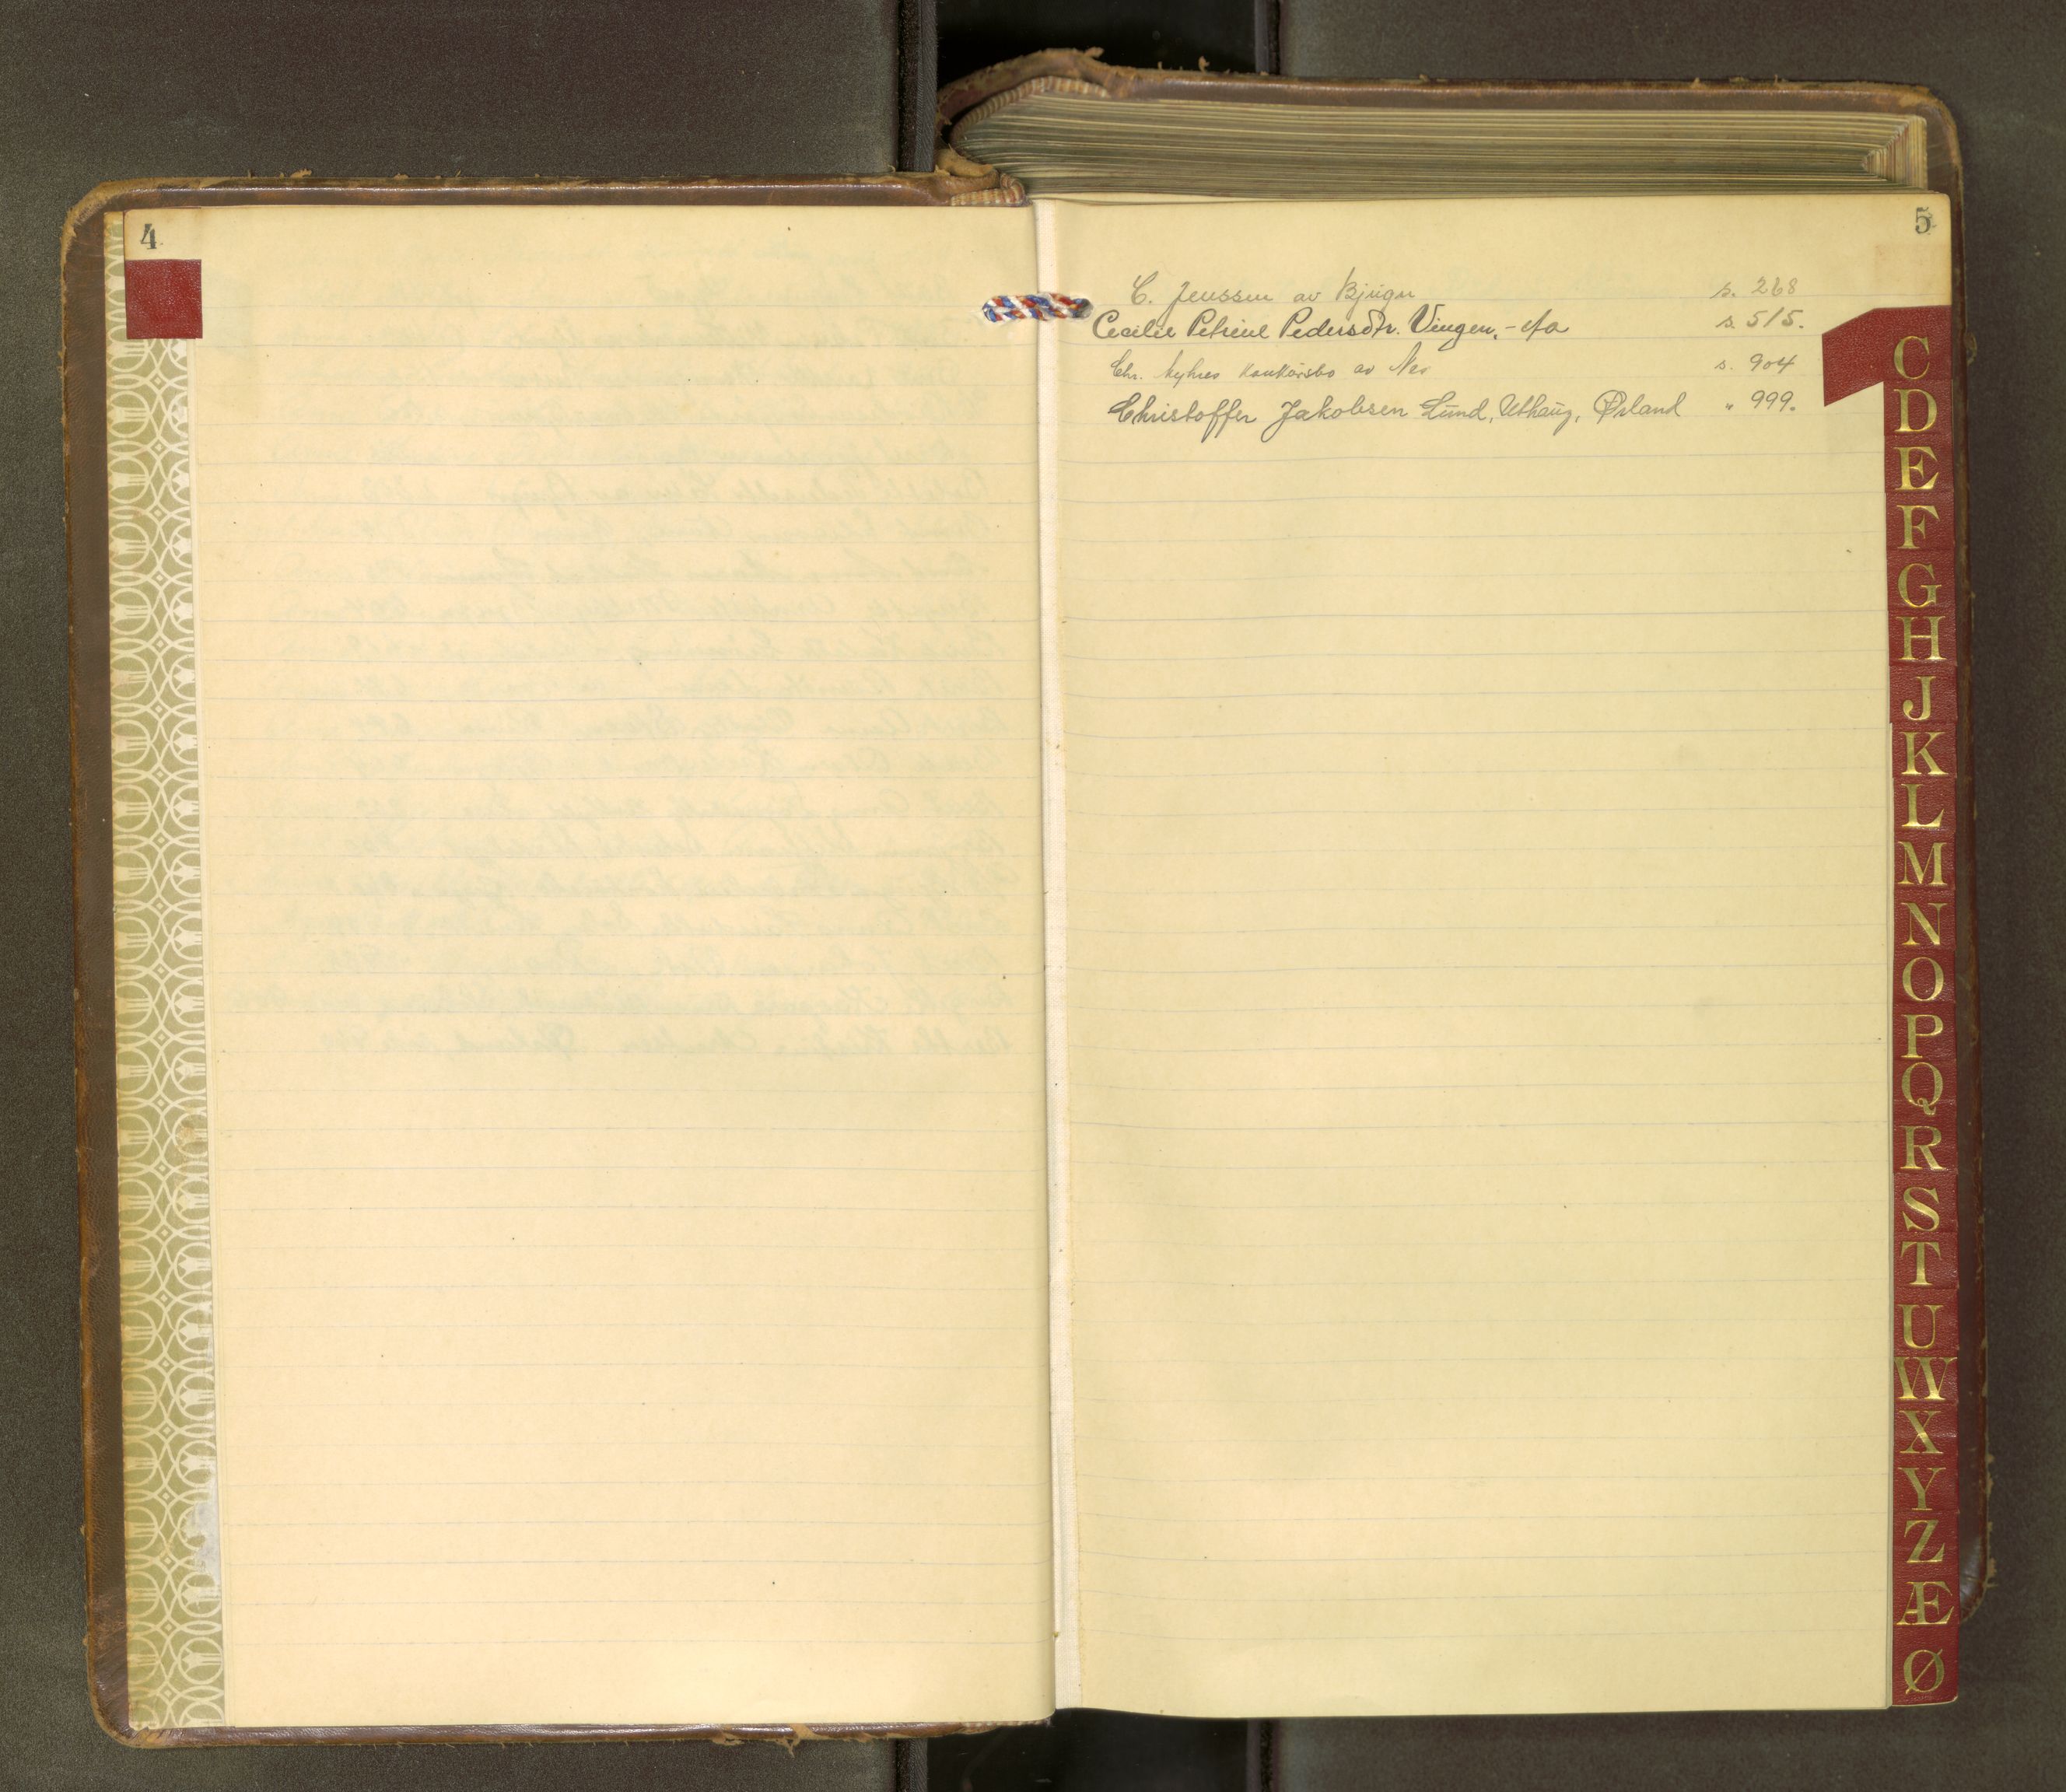 4
5
C. Jenssen av Bjugn s. 268
Cecilie Petrine Pedersdtr. Vingen, - s. 515.
Chr. av Nes s. 904
Christoffer Jakobsen Lund, Uthaug, Ørland " 999.
C
D
E
F
G
H
J
K
L
M
N
O
P
Q
R
S
T
U
W
X
Y
Z
Æ
Ø